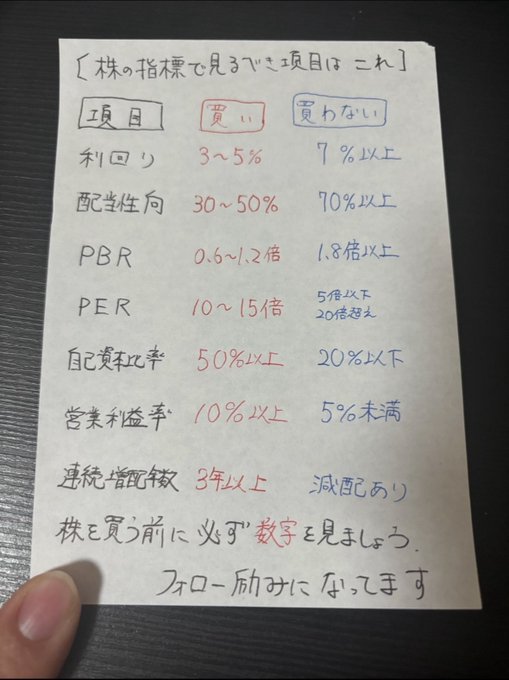 [株の指標で見るべき項目は これ]
項目 買い 買わない
利回り 3〜5% 7%以上
配当性向 30〜50% 70%以上
PBR 0.6〜1.2倍 1.8倍以上
PER 10〜15倍 5倍以下
20倍超え
自己資本比率 50%以上 20%以下
営業利益率 10%以上 5%未満
連続増配年数 3年以上 減配あり
株を買う前に 必ず 数字を見ましょう.
フォロー励みになってます